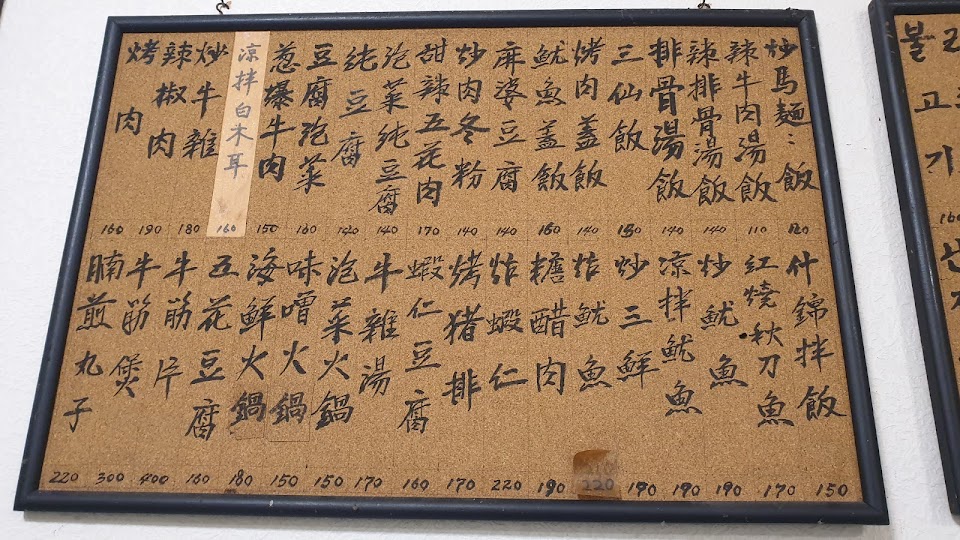 炒馬麵:飯 120
辣牛肉湯飯 110
辣排骨湯飯 140
排骨湯飯 140
三仙飯
烤肉蓋飯 140
魷魚蓋飯
麻婆豆腐 140
炒肉冬粉 140
甜辣五花肉 170
泡菜純豆腐 140
純豆腐
豆腐泡菜 160
葱爆牛肉 150
涼拌白木耳 160
炒牛雜 180
辣椒肉 190
烤肉 160
什錦拌飯 150
紅燒秋刀魚 170
炒魷魚 190
涼拌魷魚 190
炒三鮮 190
炸魷魚 220
糖醋肉 190
炸蝦仁 220
烤豬排 170
蝦仁豆腐 160
牛雜湯 170
泡菜火鍋 150
味噌火鍋 150
海鮮火鍋 180
五花豆腐 160
牛筋片 400
牛筋煲 300
腩煎丸子 220
불고기